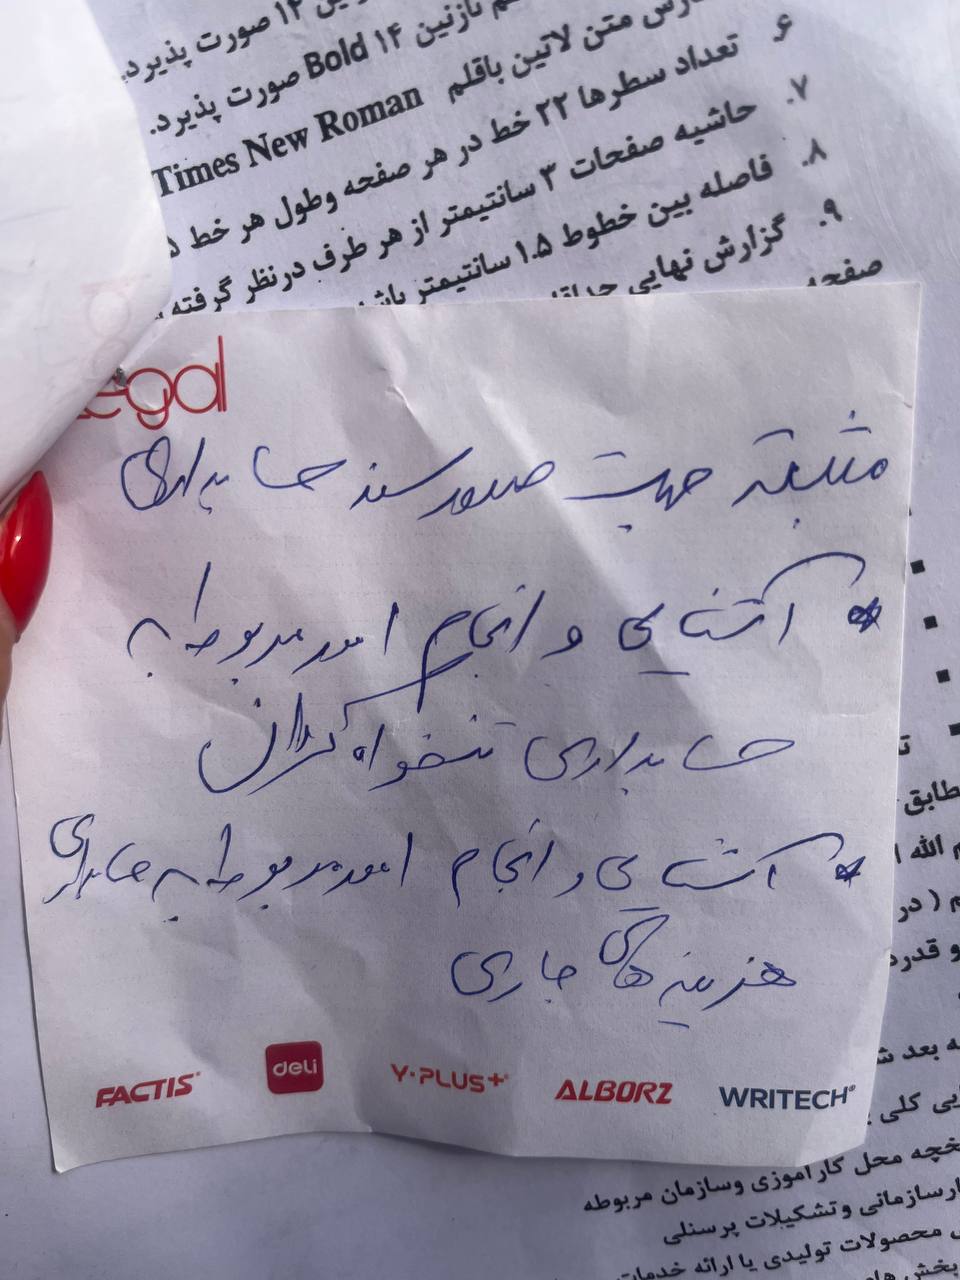 ن ۱۲ صورت پذیرد.
م نازنین ۱۴ Bold صورت پذیرد.
۶. رش متن لاتین باقلم Times New Roman
۷. تعداد سطرها ۲۲ خط در هر صفحه وطول هر خط ۵
۸. حاشیه صفحات ۳ سانتیمتر از هر طرف درنظر گرفته
۹. فاصله بین خطوط ۱.۵ سانتیمتر باش
گزارش نهایی حداقل
صفحه
egal
جهت صدور سند حسابداری
* آشنایی و انجام امور مربوط به
حسابداری تنخواه گردان
* آشنایی و انجام امور مربوط به حسابداری
هزینه های جاری
FACTIS deli Y·PLUS+ ALBORZ WRITECH
طابق
م الله ا
م ( در
و قدرد
ه بعد ش
یی کلی
خچه محل کارآموزی وسازمان مربوطه
ارسازمانی وتشکیلات پرسنلی
محصولات تولیدی یا ارائه خدمات
بخش های